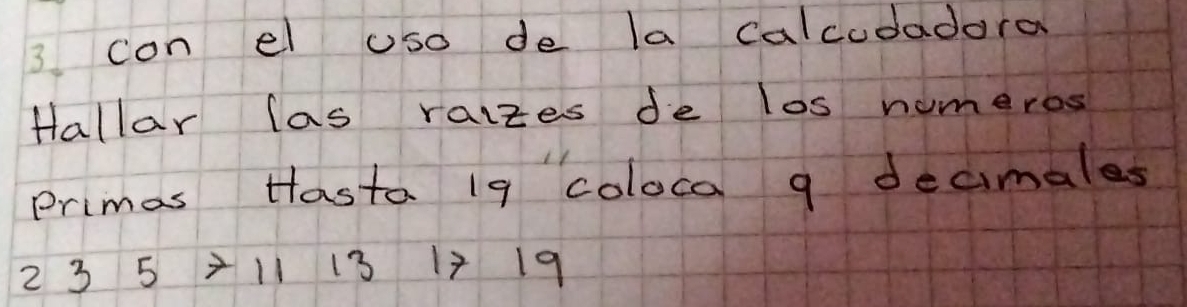 3. con el uso de la calcudadora
Hallar las raizes de los numeros
primos Hasta 19 "coloca 9 decimales
2 3 5 7 11 13 17 19